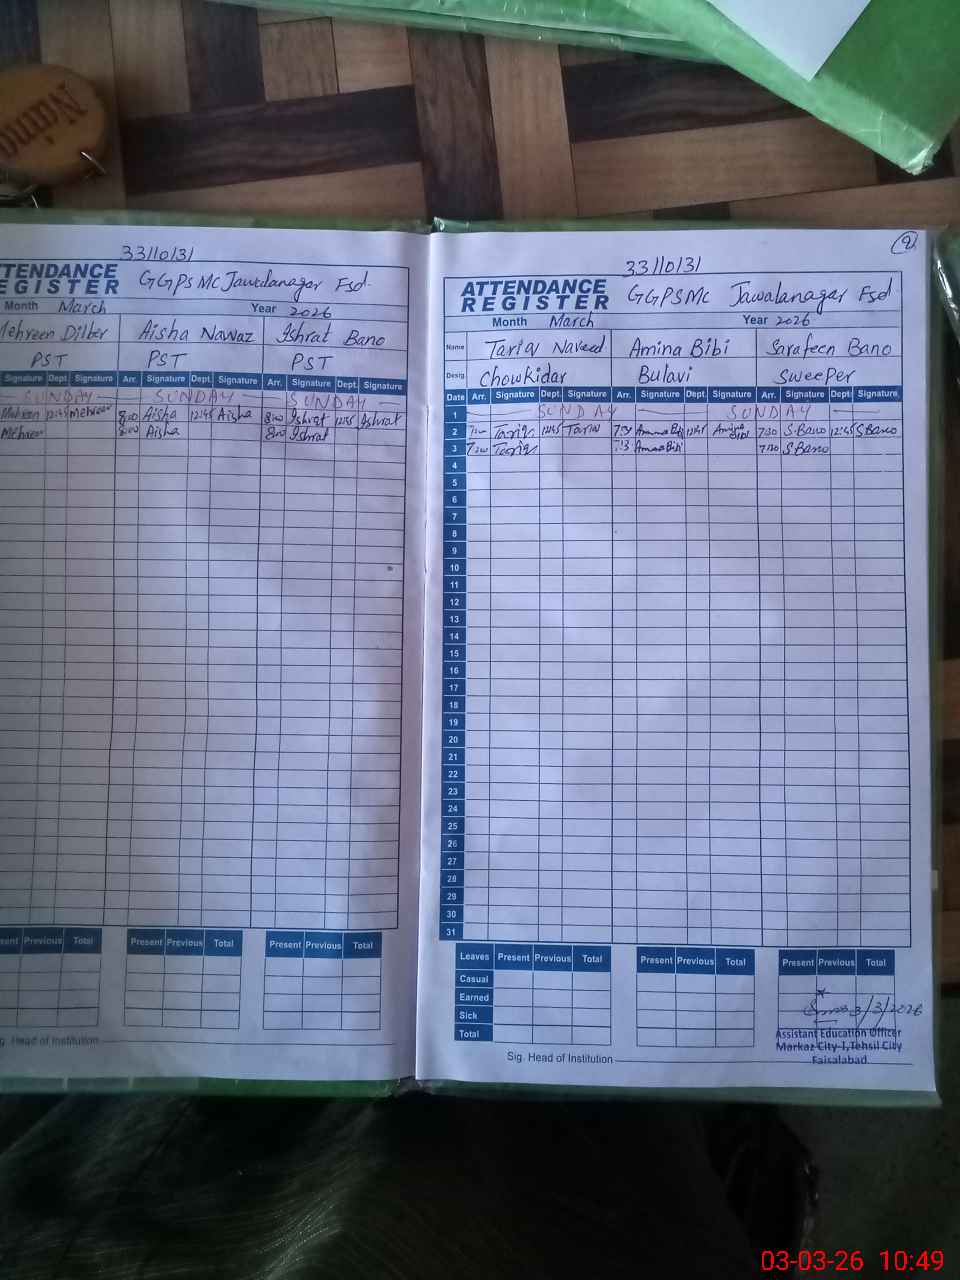 33110131
TTENDANCE
EGISTER
GGPS MC Jawalanagar Fsd.
Month March Year 2026
Mehreen Dilber Aisha Nawaz Ishrat Bano
PST PST PST
Signature Dept. Signature Arr. Signature Dept. Signature Arr. Signature Dept. Signature
SUNDAY SUNDAY SUNDAY
Mehreen 12:45 Mehreen 8:00 Aisha 12:45 Aisha 8:00 Ishrat 12:45 Ishrat
Mehreen 8:00 Aisha 8:00 Ishrat
sent Previous Total Present Previous Total Present Previous Total
g. Head of Institution
2
33110131
ATTENDANCE
REGISTER
GGPSMC Jawalanagar Fsd
Month March Year 2026
Name Tariq Naveed Amina Bibi Sarafeen Bano
Desig. Chowkidar Bulavi Sweeper
Date Arr. Signature Dept. Signature Arr. Signature Dept. Signature Arr. Signature Dept. Signature
1 SUNDAY SUNDAY
2 Tariq 12:45 Tariq Amina Bibi 12:45 Amina Bibi 7:30 S.Bano 12:45 S.Bano
3 Tariq Amina Bibi 7:30 S.Bano
4
5
6
7
8
9
10
11
12
13
14
15
16
17
18
19
20
21
22
23
24
25
26
27
28
29
30
31
Leaves Present Previous Total Present Previous Total Present Previous Total
Casual
Earned
Sick
Total
3/3/2026
Assistant Education Officer
Markaz City-1, Tehsil City
Faisalabad
Sig. Head of Institution
03-03-26 10:49